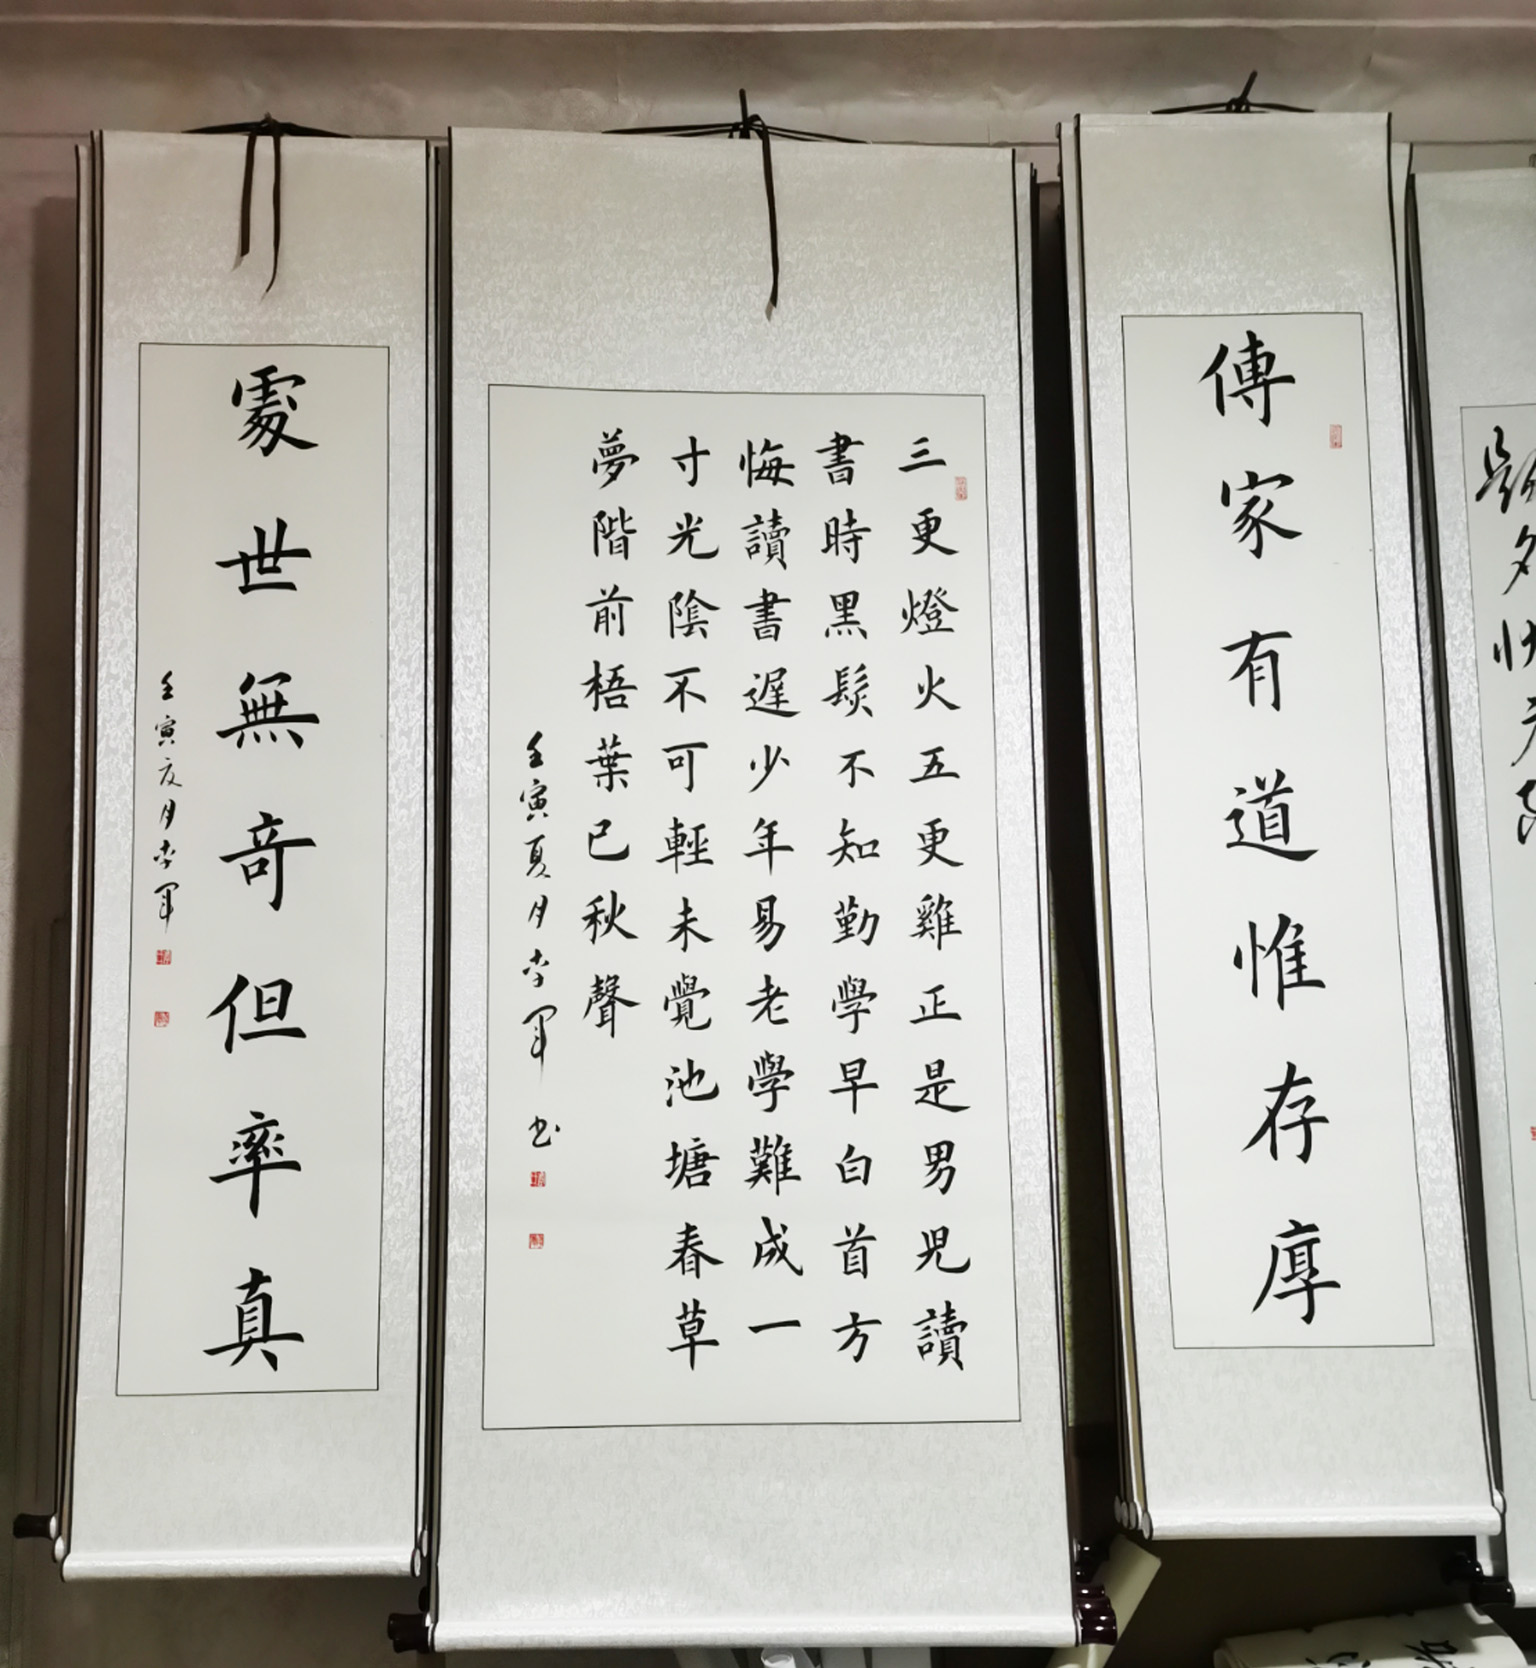 傳家有道惟存厚
三更燈火五更雞正是男児讀
書時黑髮不知勤學早白首方
悔讀書遲少年易老學難成一
寸光陰不可輕未覺池塘春草
夢階前梧葉已秋聲
壬寅夏月李軍书
處世無奇但率真
壬寅夏月李軍